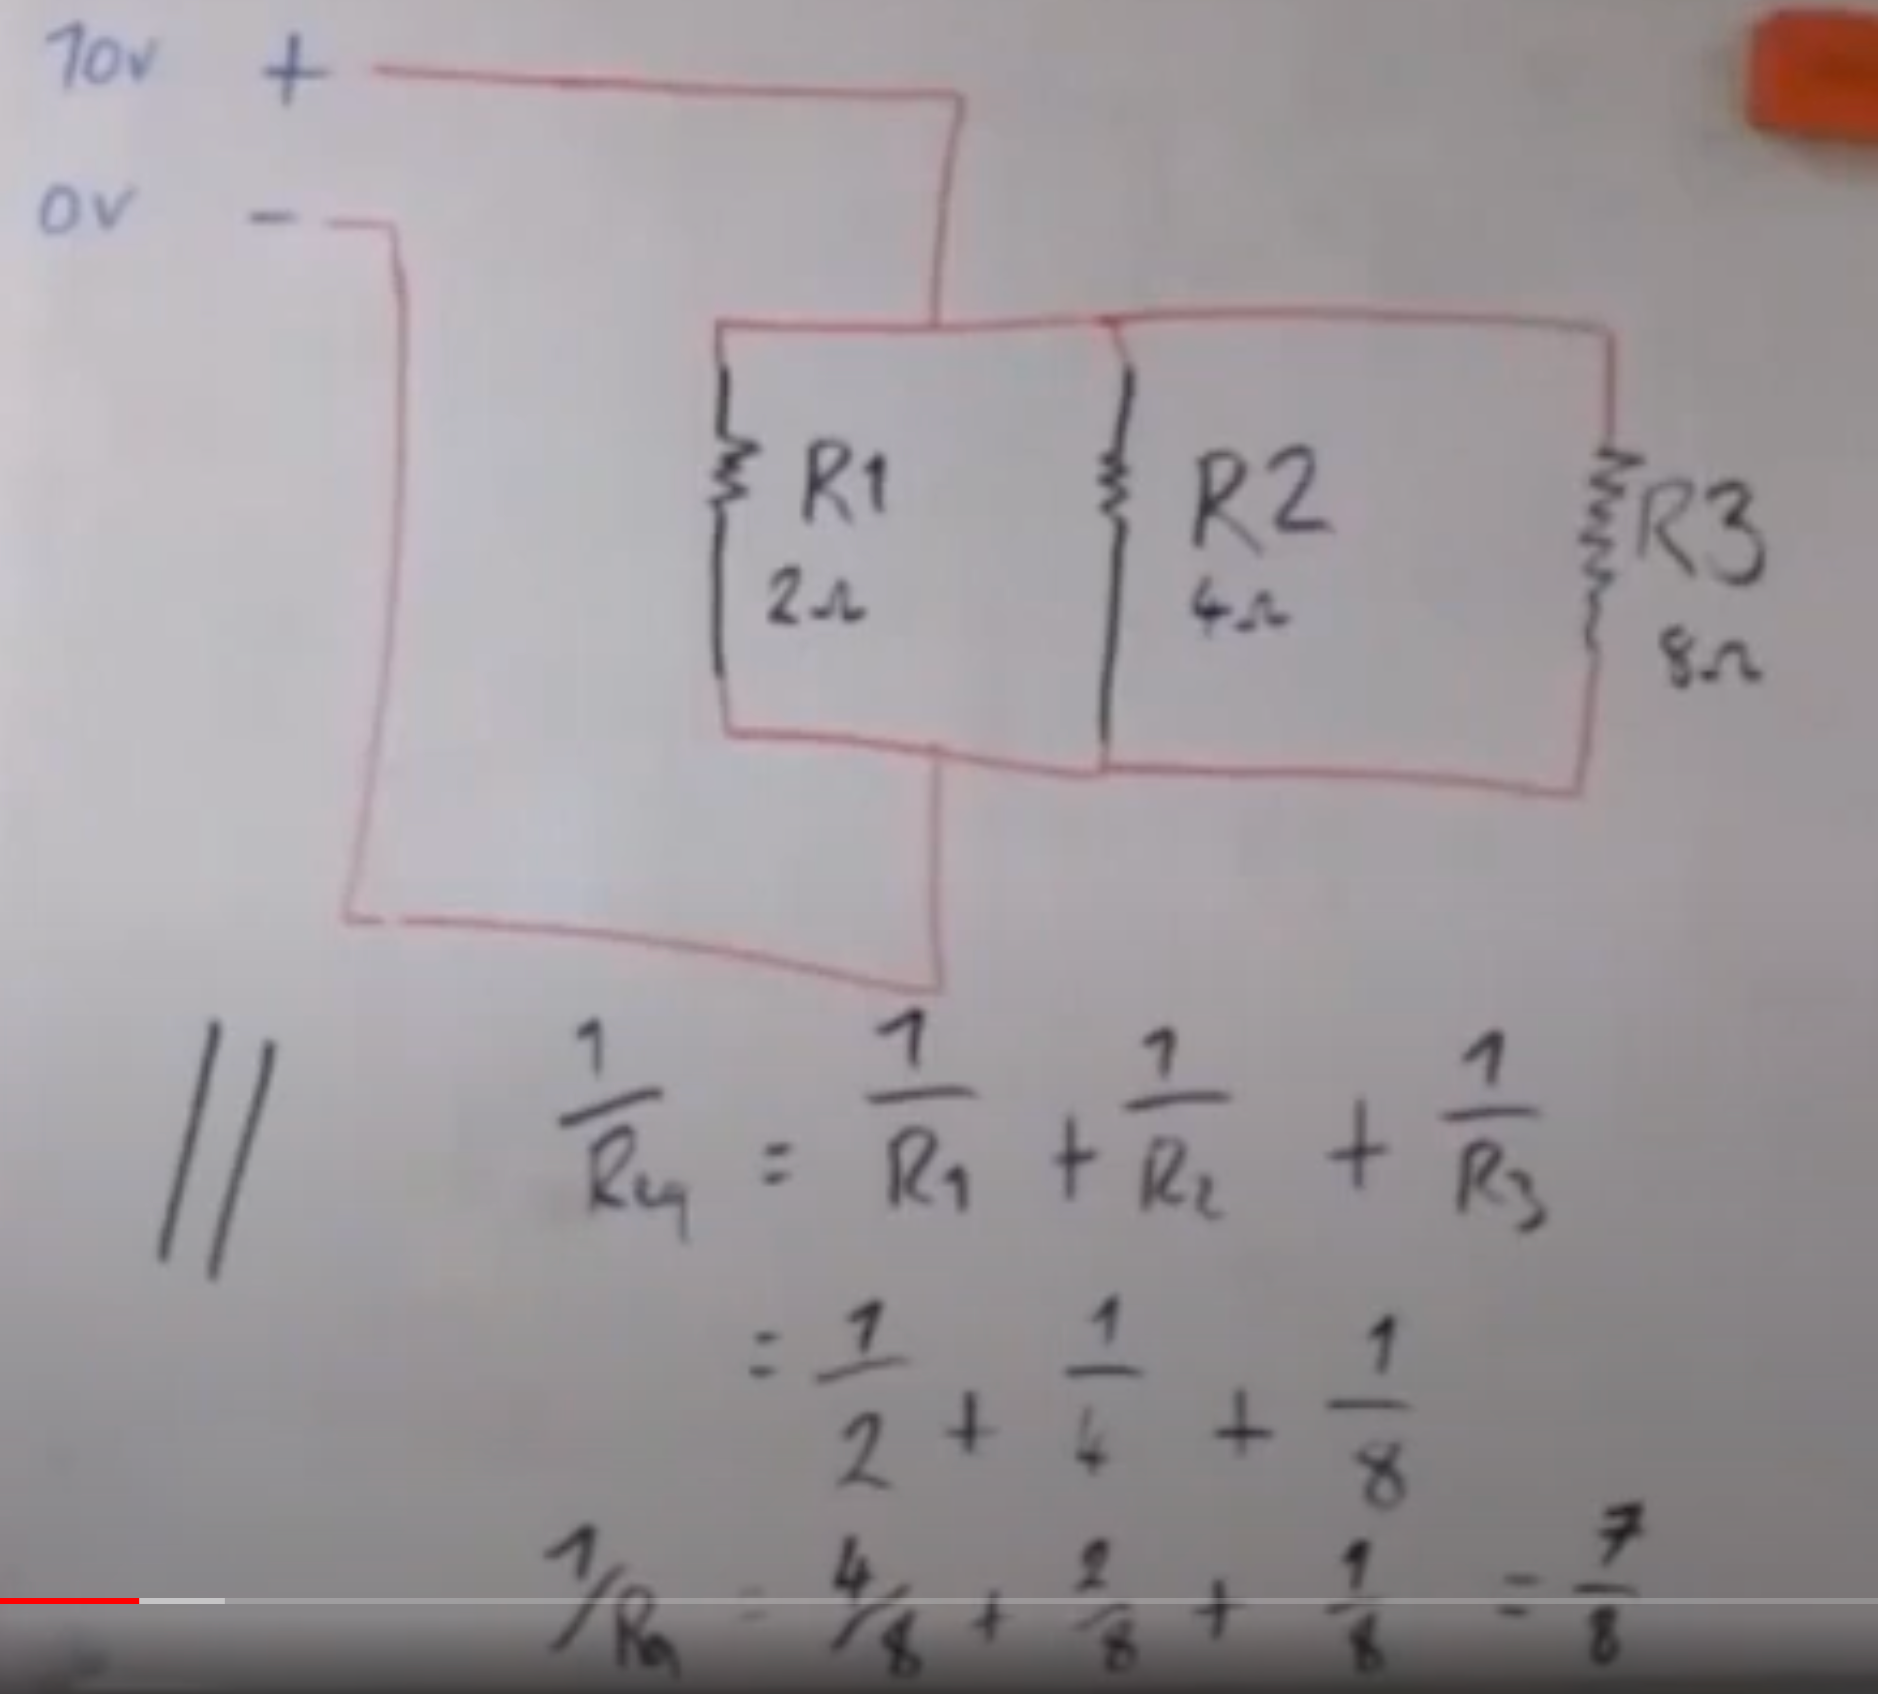 10v +
0v -
R1
2Ω
R2
4Ω
R3
8Ω
// 1/Req = 1/R1 + 1/R2 + 1/R3
= 1/2 + 1/4 + 1/8
1/Rq = 4/8 + 2/8 + 1/8 = 7/8